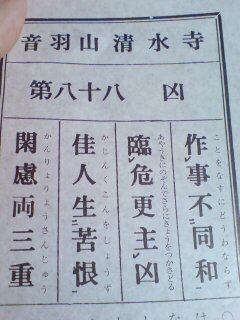 音羽山清水寺
第八十八 凶
作レ事不二同和一
ことをなすにどうわならず
臨レ危更主レ凶
あやうきにのぞんでさらにきょうをつかさどる
佳人生二苦恨一
かじんくこんをしょうず
閑慮両三重
かんりょりょうさんじゅう